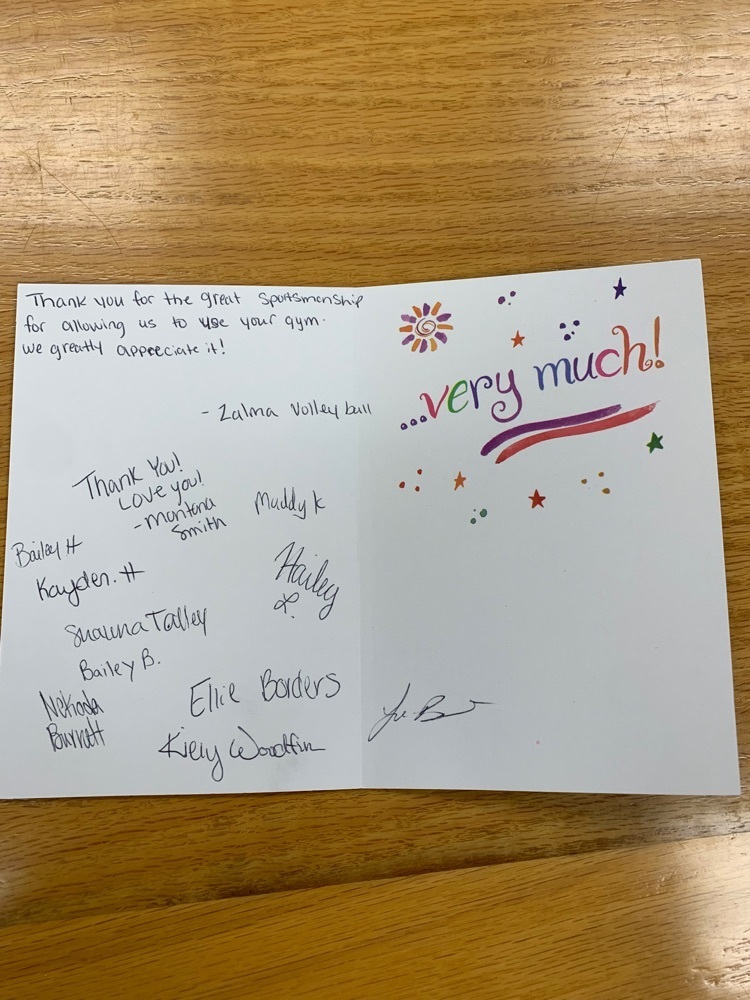 Thank you for the great Sportsmanship
for allowing us to use your gym.
we greatly appreciate it!
- Zalma Volleyball
Thank You!
Love you!
-Montana
Smith
Maddy K
Bailey H
Kayden. H
Hailey
Shauna Talley
Bailey B.
Ellie Borders
Burnett
Kiely Woodfin
...very much!